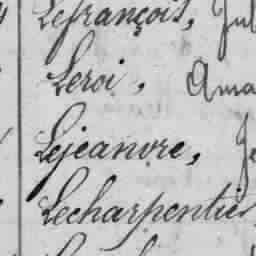 Lefrançois, Jul
Leroi, Ama
Lejeanvre, Je
Lecharpentier